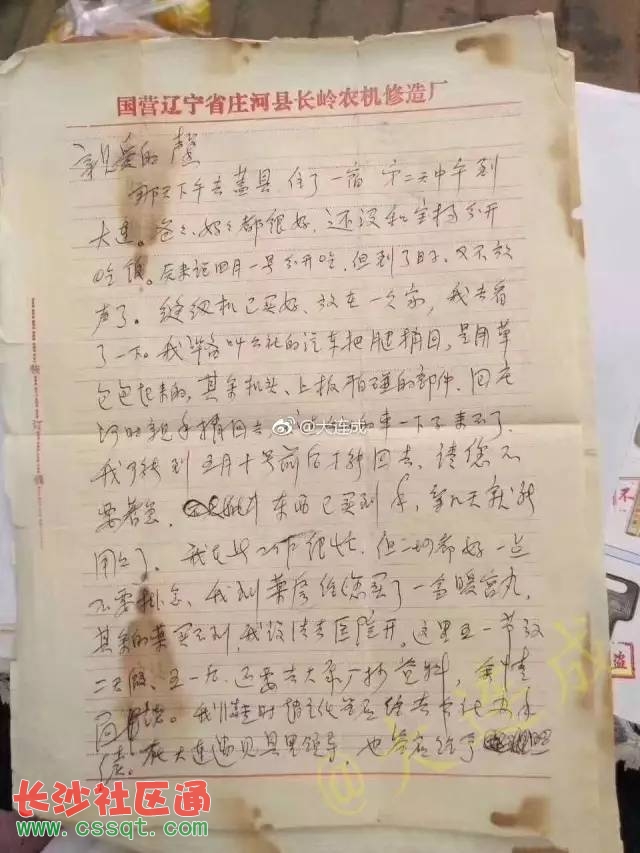 国营辽宁省庄河县长岭农机修造厂
亲爱的
那天下午去盖县住了一宿 第二天中午到
大连。爸爸、妈妈都很好,还没和宝 分开
吃饭。原来说四月一号分开吃,但到了日子,又不放
声了。缝纫机已买好、放在 家,我去看
了一下。我准备叫公社的汽车把腿捎回,是用草
包包起来的,其余机头、上板怕碰的部件,回庄
河时亲手捎回去, 车一下子来不了,
我 到五月十号前后才能回去、请您不
要着急, 东西已买到手,等几天就能
用上了。我在此工作很忙,但一切都好一点
不要挂念、我到药房给您买了一盒暖宫丸,
其余的药买不到,我设法去医院开。这里五一节放
二天假、五一后,还要去大 厂抄资料,余情
面谈。我 时
在大连遇见县里领导,也答应给
@大连成
@大连成
长沙社区通
www.cssqt.com
装
订
线
不
盗